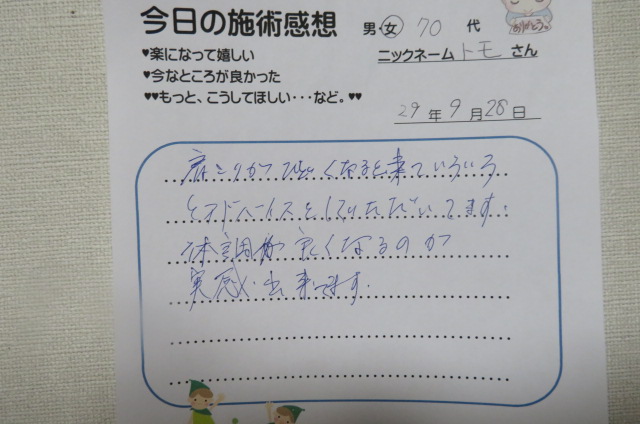 今日の施術感想 男・女 70 代
ありがとう。
♥楽になって嬉しい
ニックネーム トモ さん
♥今なところが良かった
♥♥もっと、こうしてほしい・・・など。♥♥
29 年 9 月 28 日
肩こりがひどくなると来ていろいろ
とアドバイスをしていただいてます。
体調が良くなるのが
実感出来てます。